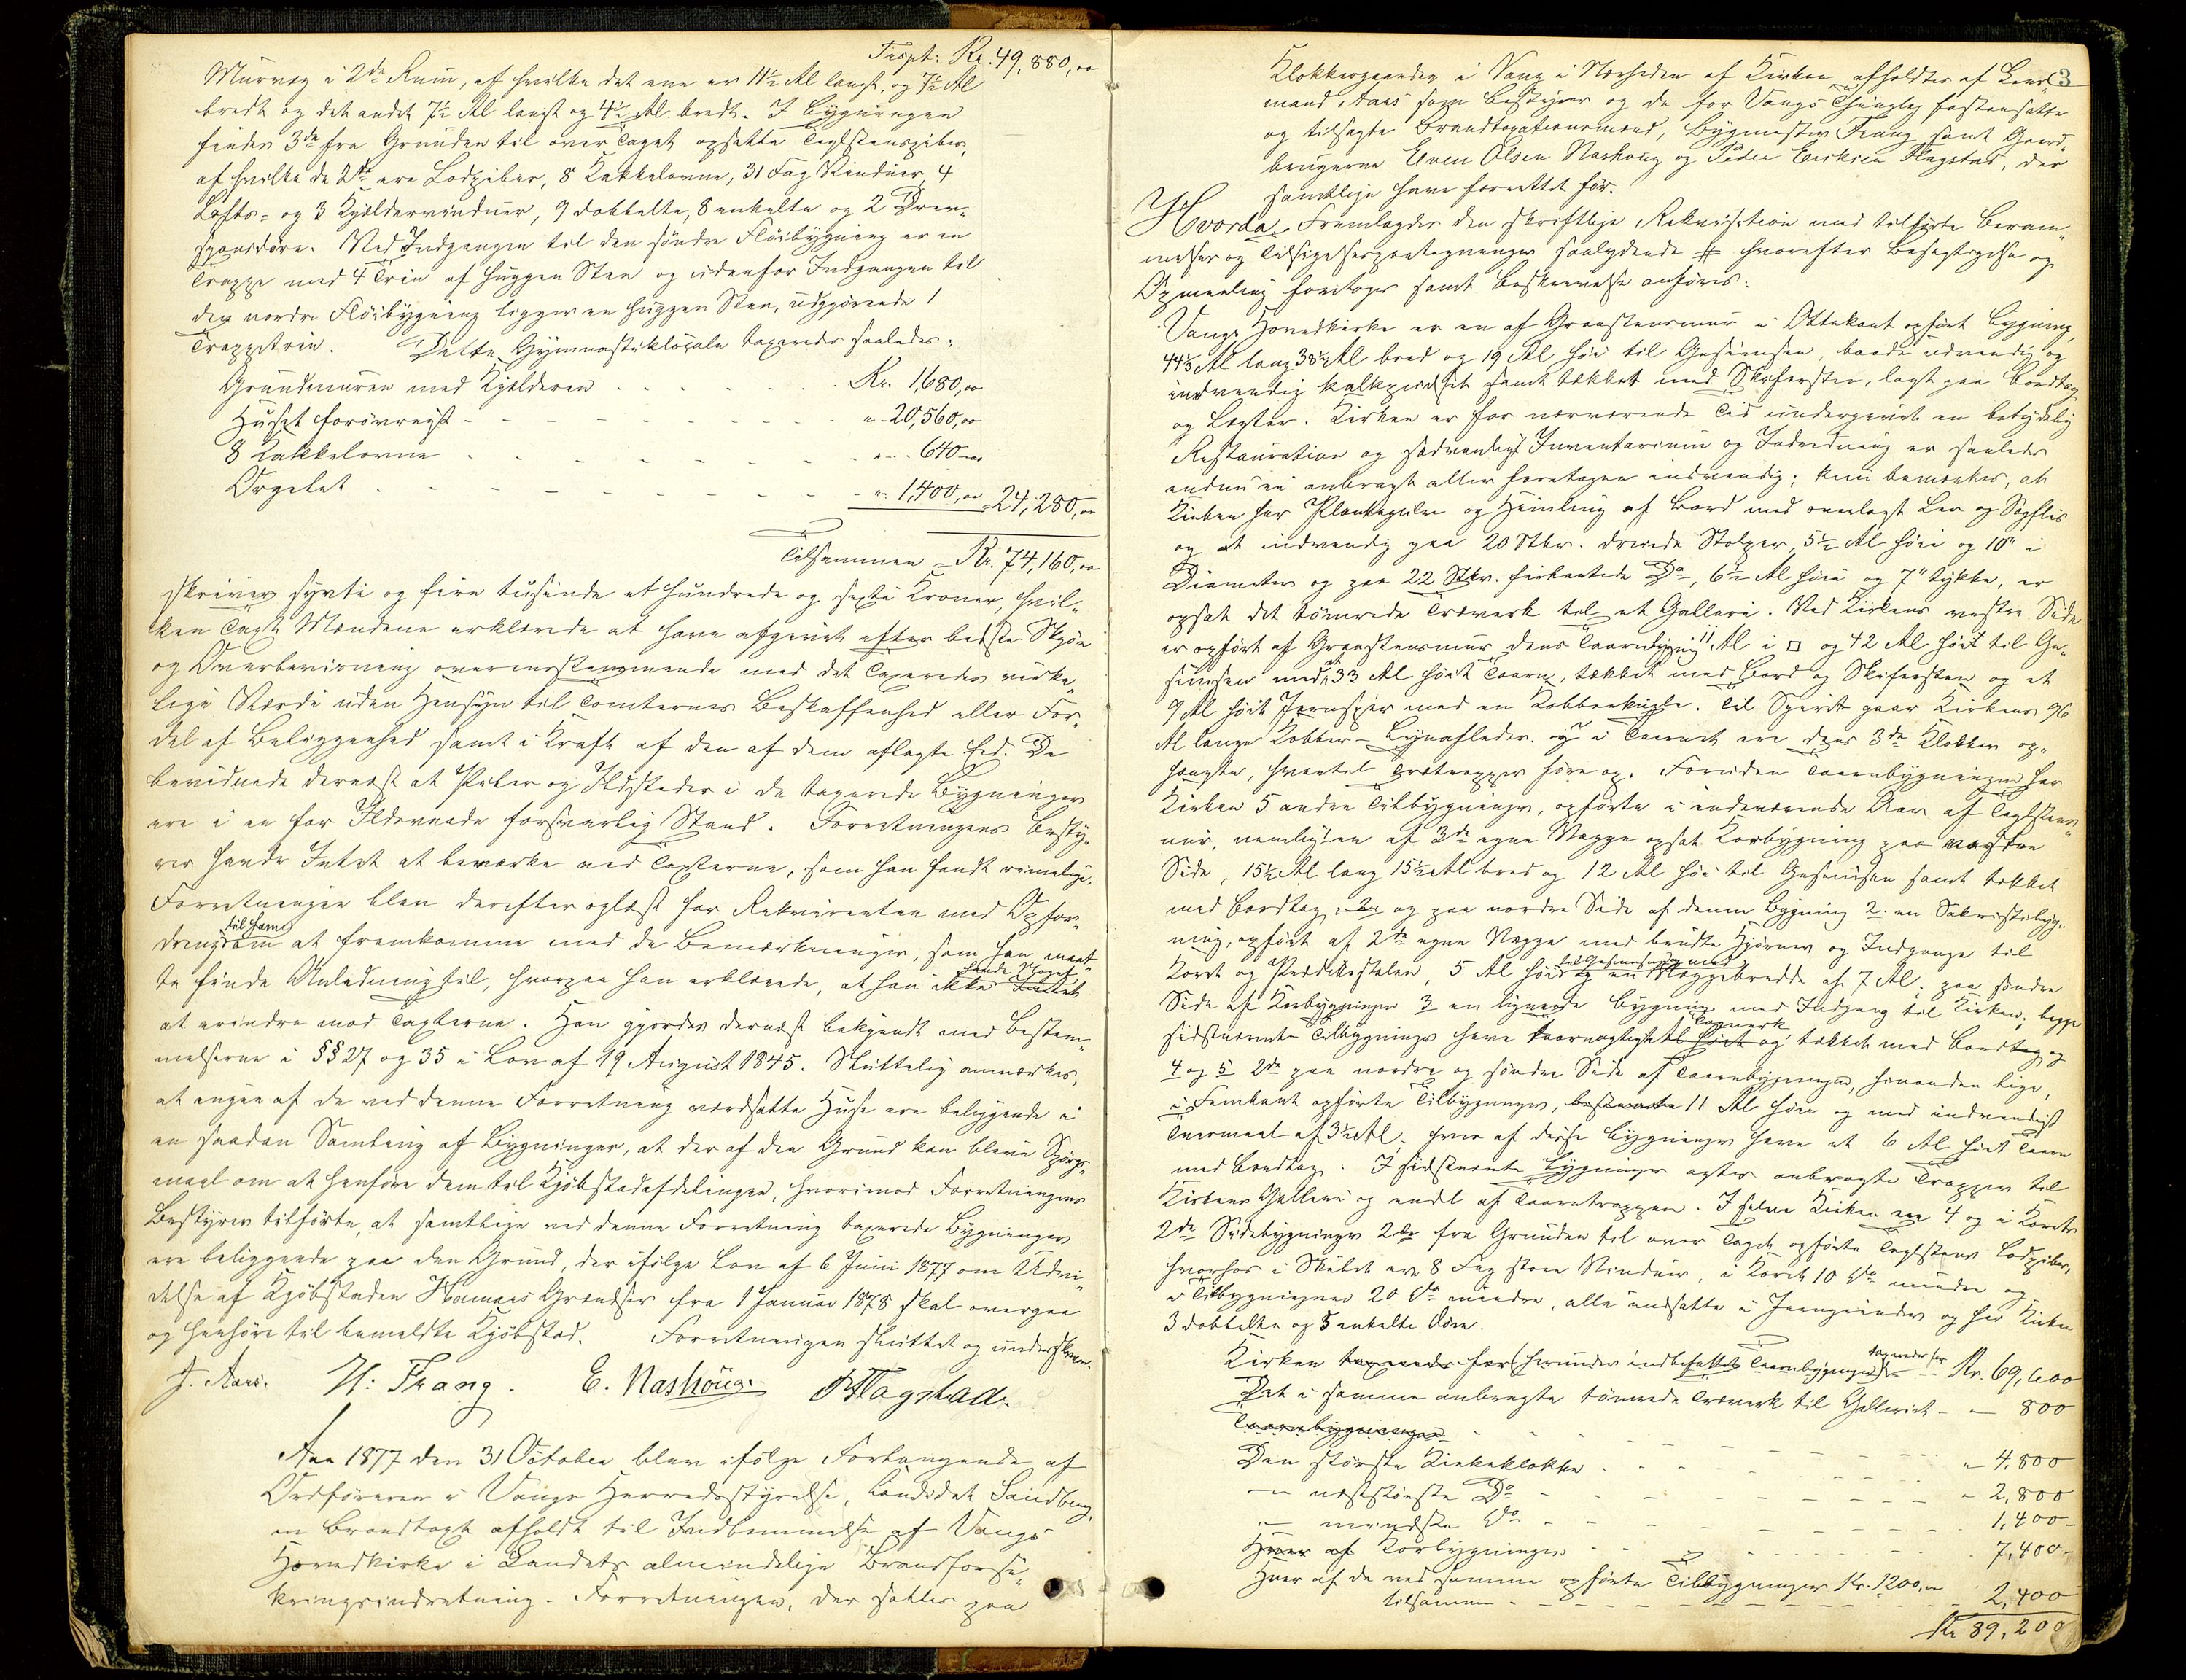 Trspt: Kr. 49,880,00
Murvæg i 2de Rum, af hvilke det ene er 11½ Al langt, og 7½ Al
bredt og det andet 7½ Al langt og 4½ Al. bredt. I Bygningen
findes 3de fra Grunden til over Taget opsatte Teglstenspiber,
af hvilke de 2de ere Lodpiber, 8 Kakkelovne, 31 Fag Vinduer, 4
Lofts- og 3 Kjældervinduer, 9 dobbelte, 8 enkelte og 2
Døre. Ved Indgangen til den søndre Fløibygning er en
Trappe med 4 Trin af huggen Sten og udenfor Indgangen til
den nordre Fløibygning ligger en huggen Sten, udgjørende 1
Trappetrin. Dette Gymnastiklokale taxeredes saaledes:
Grundmuren med Kjælderen Kr. 1,680,00
Huset forøvrigt - " 20,560,00
8 Kakkelovne " 640 00
Orgelet " 1,400,00 24,280,00
Tilsammen = Kr. 74,160,00
skriver sytti og fire tusinde et hundrede og sexti Kroner, hvil-
ken Taxt Mændene erklærede at have afgivet efter bedste Skjøn
og Overbevisning overensstemmende med det Taxeredes virke-
lige Værdi uden Hensyn til Tomternes Beskaffenhed eller For-
del af Beliggenhed samt i Kraft af den af dem aflagte Eed. De
bevidnede dernæst at Piber og Ildsteder i de taxerede Bygninger
ere i en for Ildsvaade forsvarlig Stand. Forretningens Besty-
rer havde Intet at bemærke ved Taxterne, som han fandt rimelige.
Forretningen blev derefter oplæst for Rekvirenten med Opfor-
dring til ham om at fremkomme med de Bemærkninger, som han maat-
te finde Anledning til, hvorpaa han erklærede, at han ikke havde Noget
at erindre mod Taxterne. Han gjordes dernæst bekjendt med Bestem-
melserne i §§ 27 og 35 i Lov af 19 August 1845. Sluttelig anmærkes,
at ingen af de ved denne Forretning værdsatte Huse ere beliggende i
en saadan Samling af Bygninger, at der af den Grund kan blive Spørgs-
maal om at henføre dem til Kjøbstadafdelingen, hvorimod Forretningens
Bestyrer tilførte, at samtlige ved denne Forretning taxerede Bygninger
ere beliggende paa den Grund, der ifølge Lov af 6 Juni 1877 om Udvi-
delse af Kjøbstaden Hamars Grændser fra 1 Januar 1878 skal overgaa
og henhøre til bemeldte Kjøbstad. Forretningen sluttet og underskreven.
J. Aars. H: Frang. E. Nashoug P Hagstad.
Aar 1877 den 31 October blev ifølge Forlangende af
Ordføreren i Vangs Herredsstyrelse, Candidat Sandberg,
en Brandtaxt afholdt til Indlemmelse af Vangs
Hovedkirke i Landets almindelige Brandforsik-
kringsindretning. Forretningen, der sattes paa
3
Klokkergaarden i Vang i Nærheden af Kirken afholdtes af Lens-
mand Aars som Bestyrer og de for Vangs Thinglag fastansatte
og tilsagte Brandtaxationsmænd, Bygmester Frang samt Gaard-
brugerne Even Olsen Nashoug og Peder Eriksen Hagstad, der
samtlige have forrettet før.
Hvorda Fremlagdes den skriftlige Rekvisition med tilførte Beram-
melses og Tilsigelsespaategninger saalydende # hvorefter Besigtigelse og
Opmaaling foretoges samt Beskrivelse anføres:
Vangs Hovedkirke er en af Graastensmur i Ottekant opført Bygning,
44½ Al lang 38½ Al bred og 19 Al høi til Gesimsen, baade udvendig og
indvendig kalkpudset samt tækket med Skifersten, lagt paa Bordtag
og Lægter. Kirken er for nærværende Tid undergivet en betydelig
Restauration og sædvanligt Inventarium og Indredning er saaledes
endnu ei anbragt eller foretagen indvendig; kun bemærkes, at
Kirken har Plankegulv og Himling af Bord med overlagt Ler og Sagflis
og at indvendig paa 20 Stkr. dreiede Stolper, 5½ Al høie og 10" i
Diameter og paa 22 Stkr. firkantede Do, 6½ Al høie og 7" tykke, er
opsat det tømrede Træverk til et Galleri. Ved Kirkens vestre Side
er opført af Graastensmur dens Taarnbygning 11 Al i □ og 42 Al høit til Ge-
simsen med et 33 Al høit Taarn, tækket med Bord og Skifersten og et
9 Al høit Jernspir med en Kobberkugle. Til Spiret gaar Kirkens 96
Al lange Kobber-Lynafleder og i Taarnet ere dens 3de Klokker op-
hængte, hvortil Trætrapper føre op. Foruden Taarnbygningen har
Kirken 5 andre Tilbygninger, opførte i indeværende Aar af Teglstens-
mur, nemlig 1 en af 3de egne Vægge opsat Korbygning paa østre
Side, 15½ Al lang 15½ Al bred og 12 Al høi til Gesimsen samt tækket
med Bordtag, og paa nordre Side af denne Bygning 2. en Sakristibyg-
ning, opført af 2de egne Vægge med brudte Hjørner og Indgange til
Koret og Prædikestolen, 5 Al høi til Gesimsen og med en Væggebredde af 7 Al; paa søndre
Side af Korbygningen 3 en lignende Bygning med Indgang til Kirken; begge
sidstnævnte Tilbygninger have Tagverk tækket med Bordtag og
4 og 5 2de paa nordre og søndre Side af Taarnbygningen, hinanden lige,
i Femkant opførte Tilbygninger, 11 Al høie og med indvendigt
Tværmaal af 3½ Al; hver af disse Bygninger have et 6 Al høit Taarn
med Bordtag. I sidstnævnte Bygninger agtes anbragte Trapper til
Kirkens Galleri og endel af Taarntrappen. I selve Kirken ere 4 og i Korets
2de Sidebygninger 2de fra Grunden til over Taget opførte Teglstens Lodpiber,
hvorhos i Skibet ere 8 Fag store Vinduer, i Koret 10 Do mindre og
i Tilbygningerne 20 Do mindre, alle indsatte i Jernrammer og har Kirken
3 dobbelte og 5 enkelte Døre.
Kirken (herunder indbefattet Taarnbygningen) taxeredes for Kr. 69,600
Det i samme anbragte tømrede Træverk til Galleriet - — 800
Taarnbygningen
Den største Kirkeklokke - " 4,800
— næststørste Do - " 2,800
— mindste Do - 1,400-
Korbygningen 7,400-
Hver af de ved samme opførte Tilbygninger Kr. 1200,00
tilsammen - 2,400
Kr 89,200